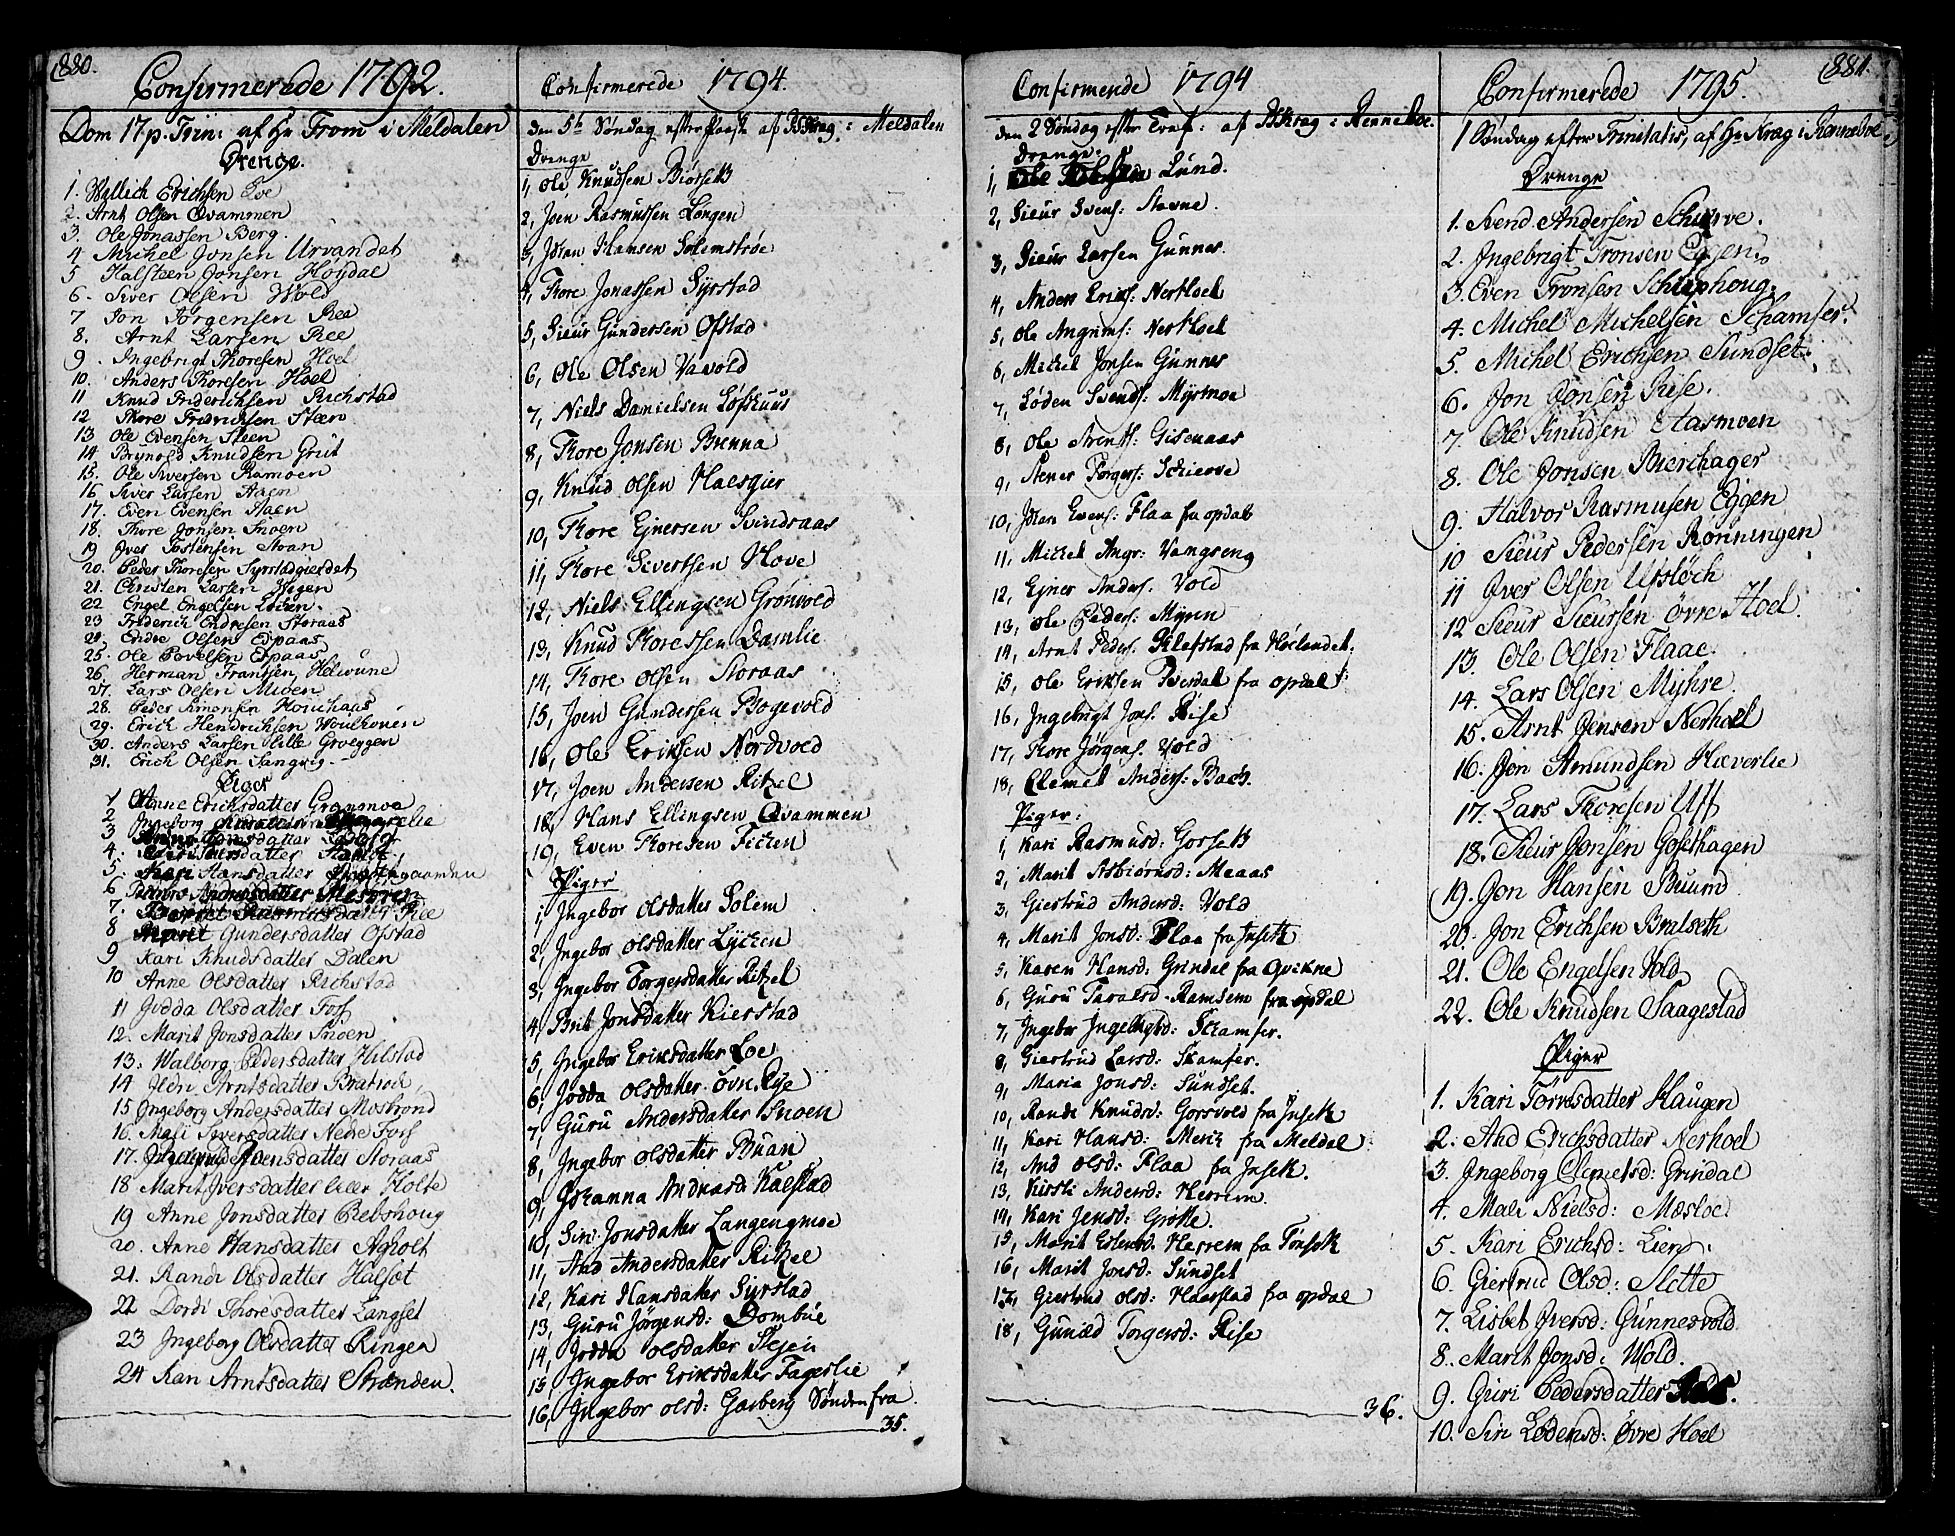 880.
Confirmerede 1792.
Dom 17 p. Trin: af Hr From i Meldalen
Drenge.
1. Wallich Erichsen Loe
2. Arnt Olsen Qvammen
3. Ole Jonassen Berg.
4 Michel Jonsen Urvandet
5 Halsteen Jonsen Høydal
6. Siver Olsen Wold
7 Jon Jørgensen Ree
8. Arnt Larsen Ree
9. Ingebrigt Thoresen Hoel
10. Anders Thoresen Hoel
11 Knud Friderichsen Richstad
12 Thore Fridrichsen Steen
13 Ole Evensen Steen
14 Brynold Knudsen Grut
15. Ole Siversen Ramoen
16 Siver Larsen Aaen
17. Even Evensen Staen
18. Thore Jonsen Snoen
19 Iver Tostensen Aaran
20. Peder Thoresen Syrstadgierdet
21. Christen Larsen Wegen
22 Engel Engelsen Løken.
23 Friderich Endresen Storaas
24. Endre Olsen Espaas
25. Ole Povelsen Espaas
26. Herman Frantsen Helvune
27. Lars Olsen Moen
28. Peder Simonsen
29. Erich Hendrichsen
30. Anders Larsen Litle Grøeggen
31. Erich Olsen Langvig
Piger
1 Anne Erichsdatter Gransmoe
2 Ingeborg
3
4.
5. Kari Hansdatter
6
7. Beret Rasmusdatter Ree
8 Marit Gundersdatter Ofstad
9 Kari Knudsdatter Dalen
10 Anne Olsdatter Richstad
11 Jødda Olsdatter Fosf
12. Marit Jonsdatter Snoen
13. Walborg Pedersdatter Hilstad
14 Ildri Arntsdatter Bratsøe
15 Ingeborg Andersdatter Mostrond
16. Mali Siversdatter Nedre Fosf
17. Joensdatter Storaas
18 Marit Iversdatter Holte
19 Anne Jonsdatter Bebshoug
20. Anne Hansdatter Aaholt
21. Randi Olsdatter Halset
22 Dordi Thoresdatter Langset
23 Ingeborg Olsdatter Ringen
24 Kari Arntsdatter Strønden.
Confirmerede 1794.
den 5te Søndag efter Paaske af PKrag i Meldalen
Drenge
1, Ole Knudsen Biørseth
2, Joen Rasmussen Løngen
3, Johan Hansen Solemstrøe
4, Tore Jonassen Syrstad
5, Sieur Gundersen Ofstad
6, Ole Olsen Vavold
7, Niels Danielsen Løfshuus
8, Tore Jonsen Brenna
9, Knud Olsen Haesgier
10, Tore Ejnersen Svindsaas
11, Tore Sivertsen Hove
12, Niels Ellingsen Grønvold
13, Knud Toressen Damlie
14, Tore Olsen Storaas
15, Joen Gundersen Bogevold
16, Ole Eriksen Nordvold
17, Joen Andersen Ritzel
18, Hans Ellingsen Qvammen
19, Even Toresen Ficken
Piger
1, Ingebor Olsdatter Solem
2, Ingebor Olsdatter Lycken
3, Ingebor Torgersdatter Ritzel
4, Brit Jonsdatter Kierstad
5, Ingebor Eriksdatter Loe
6, Jødda Olsdatter Øvre Rye
7, Guru Andersdatter Snoen
8, Ingebor Olsdatter Buan
9, Johanna Andrasd: Kalstad
10, Siri Jonsdatter Langengmoe
11, Aad Andersdatter Ritzel
12, Kari Hansdatter Syrstad
13, Guru Jørgensd: Dombue
14, Jødda Olsdatter Stejen
15, Ingebor Eriksdatter Fagerlie
16, Ingebor Olsd: Gasberg Sønden fra
35.
Confirmerede 1794
den 2 Søndag efter Trnt: af PKrag i Renneboe.
Drenge.
1, Ole Lund.
2, Sieur Svens: Stavne.
3, Sieur Larsen Gunnes.
4, Anders Eriks: Nerhoel
5, Ole Angrims: Nerhoel
6, Mickel Jonsen Gunnes
7, Løden Svends: Myrmoe
8, Ole Arents: Gisenaas
9, Stener Torgers: Schierve
10, Johan Evens: Flaa fra Opdal
11, Mickel Angr: Vangseng
12, Ejner Anders. Vold
13, Ole Peders: Myren
14, Arnt Peders. Klefstad fra Hølandet.
15, Ole Eriksen Fverdal fra Opdal
16, Ingebrigt Jons. Rise
17, Tore Jørgens. Vold
18, Clemet Anders: Bach.
Piger:
1, Kari Rasmusd: Gorseth
2, Marit Asbiørnsd: Meaas
3, Giertrud Andersd: Vold
4, Marit Jonsd: Flaa fra Inseth
5, Karen Hansd: Grindal fra Qvikne
6, Guru Taralsd. Ramsem fra Opdal
7, Ingebor Ingebrigtsd: Skamfer.
8, Giertrud Larsd: Skamfer.
9, Maria Jonsd: Sundset.
10, Randi Knudsd: Gorsvold fra Inseth
11, Kari Hansd: Merk fra Meldal
12, And Olsd: Flaa fra Inseth.
13, Kirsti Andersd: Herrem.
14, Kari Jensd: Grøtte.
15, Marit Estensd. Herrem fra Inseth
16, Marit Jonsd: Sundset
17, Giertrud Olsd: Haarstad fra Opdal
18, Gunild Torgersd: Rise
36.
881.
Confirmerede 1795.
1 Søndag efter Trinitatis, af Hr Krag i Renneboe
Drenge
1. Svend Andersen Schierve.
2. Ingebrigt Tronsen Eggen.
3. Even Tronsen Schiephoug.
4. Michel Michelsen Schamfer.
5. Michel Erichsen Sundset.
6. Jon Jonsen Rise.
7 Ole Knudsen Aasmoen
8. Ole Jonsen Bierchager
9. Halvor Rasmusen Eggen
10 Sieur Pedersen Rønningen
11 Iver Olsen Ufsløch
12 Sieur Sieursen Øvre Hoel.
13. Ole Olsen Flaae.
14. Lars Olsen Myhre.
15. Arnt Jensen Nerhoel
16. Jon Amundsen Hæverlie
17. Lars Thoresen Uff
18. Sieur Jonsen Gosethagen
19. Jon Hansen Buum
20. Jon Erichsen Bratseth
21. Ole Engelsen Vold
22. Ole Knudsen Saagestad
Piger
1. Kari Torresdatter Haugen
2. And Erichsdatter Nerhoel
3. Ingeborg Clemetsd: Grindal
4. Mali Nielsd: Mæsloe
5. Kari Erichsd: Lien.
6. Giertrud Olsd: Slette
7. Lisbet Iversd: Gunnesvold
8. Marit Jonsd: Wold.
9. Guri Pedersdatter
10. Siri Lodensd: Øvre Hoel